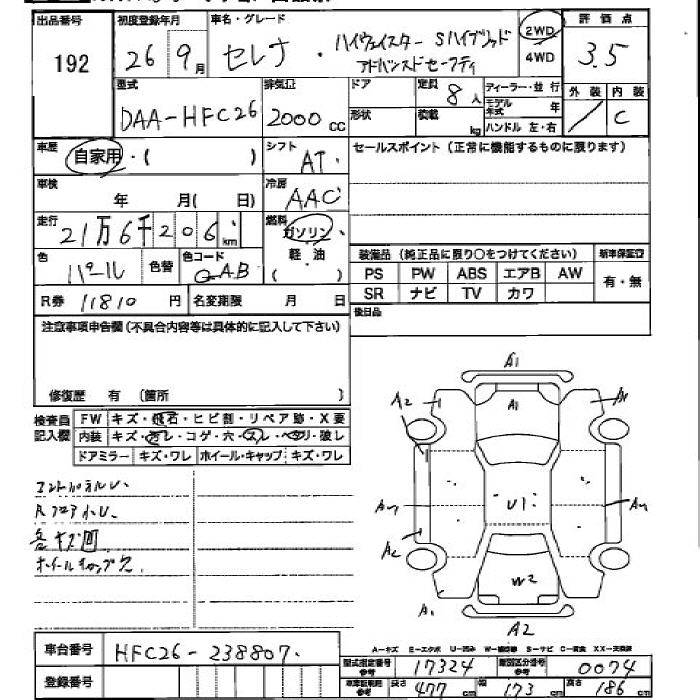 出品番号 192
初度登録年月 26年 9月
車名・グレード セレナ・ハイウェイスター Sハイブリッド
アドバンスドセーフティ
2WD
4WD
評価点 3.5
型式 DAA-HFC26
排気量 2000 cc
ドア
形状
定員 8人
積載 kg
ディーラー・並行
モデル年式 年
ハンドル 左・右
外装 /
内装 C
車歴 自家用・( )
シフト AT
セールスポイント(正常に機能するものに限ります)
車検 年 月( 日)
冷房 AAC
走行 21万6千206 km
燃料 ガソリン
軽・油
( )
色 パール
色替
色コード QAB
装備品(純正品に限り○をつけてください)
新車保証書
PS PW ABS エアB AW
有・無
SR ナビ TV カワ
R券 11810 円
名変期限 月 日
後日品
注意事項申告欄(不具合内容等は具体的に記入して下さい)
修復歴 有 (箇所 )
検査員記入欄
FW キズ・飛石・ヒビ割・リペア跡・X要
内装 キズ・汚レ・コゲ・穴・スレ・ヘタリ・破レ
ドアミラー キズ・ワレ ホイール・キャップ キズ・ワレ
ホイールキャップ欠
A1
A2 A1 A1
U1
A2
W2
A1
A2
A-キズ E-エクボ U-凹み S-サビ C-腐食 XX-交換済
車台番号 HFC26-238807
登録番号
型式指定番号 参考 17324
類別区分番号 参考 0074
車車証明用 参考 長さ 477 cm 幅 173 cm 高さ 186 cm